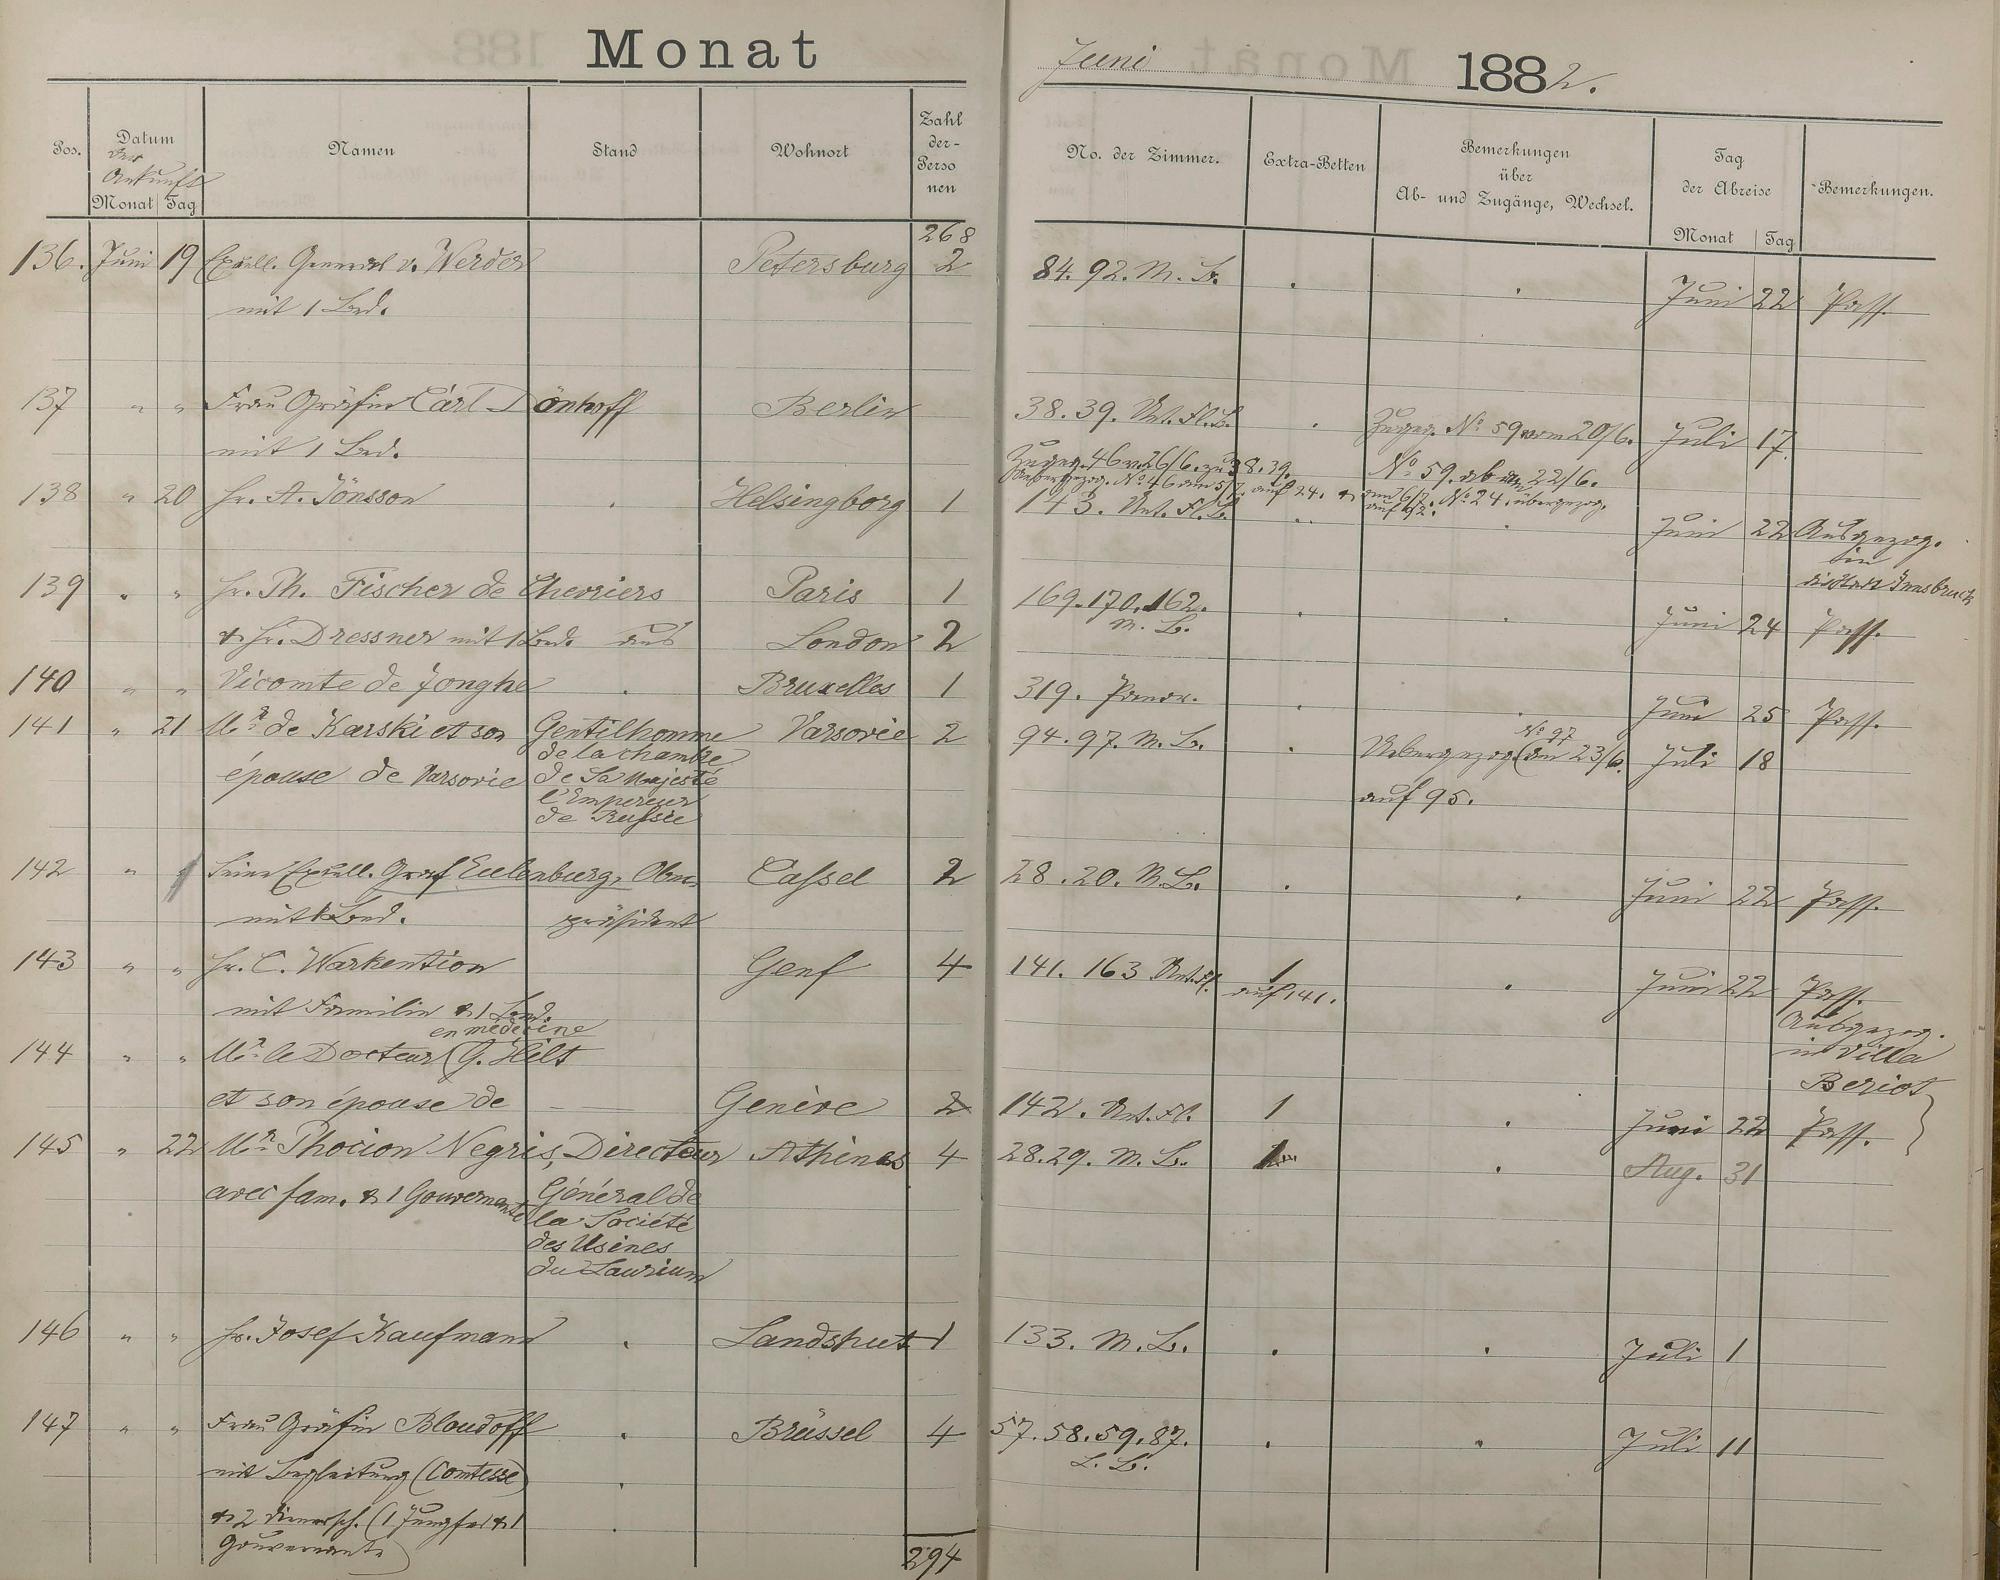 Monat
Juni 1882.
Pos.
Datum
der
Ankunft
Monat Tag
Namen
Stand
Wohnort
Zahl
der-
Perso
nen
No. der Zimmer.
Extra-Betten
Bemerkungen
über
Ab- und Zugänge, Wechsel.
Tag
der Abreise
Monat Tag
Bemerkungen.
268
136. Juni 19 Excell. General v. Werder Petersburg 2 84. 92. M. B. Juni 22 Pass.
mit 1 Bed.
137 " " Frau Gräfin Carl Dönhoff Berlin 38. 39. Unt. Fl. B. Zugeg. No 59 vom 20/6. Juli 17.
mit 1 Bed. Zugeg. 46 v. 26/6. zu 38. 39. No 59. ab am 22/6.
übergezog. No 46 am 5/7. auf 24. & am 6/7. No 24. übergezog.
auf 92.
138 " 20 Hr. A. Jönsson Helsingborg 1 143. Unt. Fl. B. Juni 22 Ausgezog.
in
die Stadt Innsbruck
139 " " Hr. Th. Fischer de Chevriers Paris 1 169. 170. 162. Juni 24 Pass.
M. B.
& Hr. Dressner mit 1 Bed. aus London 2
140 " " Vicomte de Jonghe Bruxelles 1 319. Panor. Juni 25 Pass.
141 " 21 Mr. de Karski et son Gentilhomme Varsovie 2 94. 97. M. B. Uebergezog. (No 97 am 23/6. Juli 18
de la chambre
épouse de Varsovie de Sa Majesté auf 95.
l'Empereur
de Russie
142 " " Seine Excell. Graf Eulenburg, Ober- Cassel 2 28. 20. M. B. Juni 22 Pass.
mit 1 Bed. präsident
143 " " Hr. C. Warkention Genf 4 141. 163 Unt. Fl. 1 Juni 22 Pass.
auf 141.
mit Familie & 1 Bed. Ausgezog.
en médecine in Villa
144 " " Mr. le Docteur (G. Hilt Beriot
et son épouse de Genève 2 142. Unt. Fl. 1 Juni 22 Pass.
145 " 22 Mr. Phocion Negris, Directeur Athènes 4 28. 29. M. B. 1 Aug. 31
avec fam. & 1 Gouvernante Général de
la Société
des Usines
du Laurium
146 " " Hr. Josef Kaufmann Landshut 1 133. M. B. Juli 1
147 " " Frau Gräfin Bloudoff Brüssel 4 57. 58. 59. 87. Juli 11
L. B.
mit Begleitung (Comtesse)
& 2 Dienersch. (1 Jungfer & 1
Gouvernante)
294